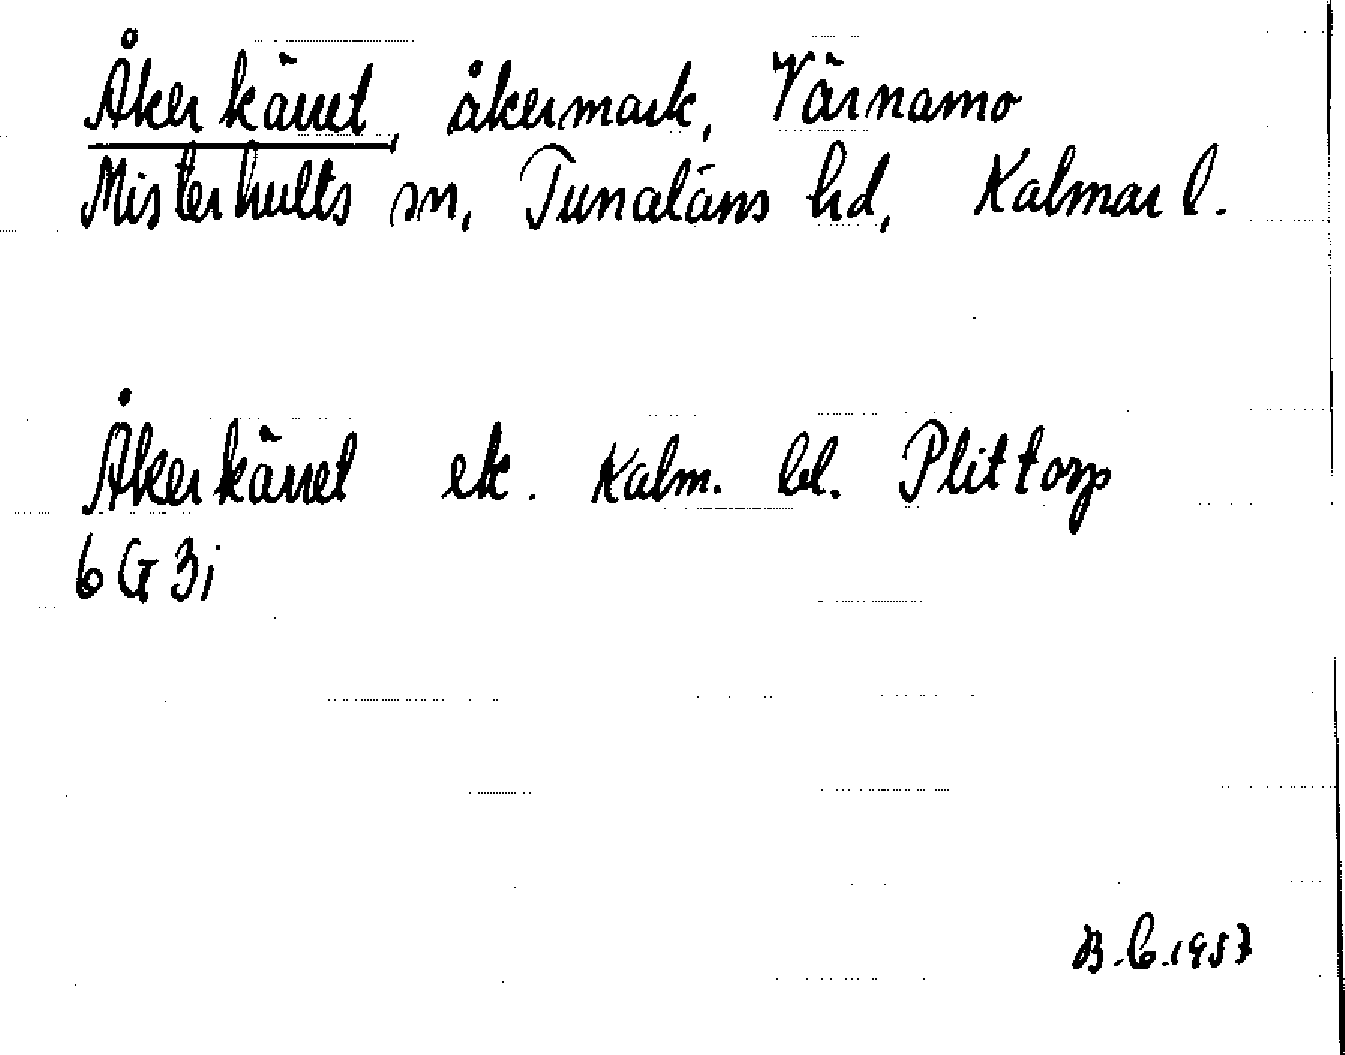 Åkerkärret, åkermark, Värnamo
Misterhults sn, Tunaläns hd, Kalmar l.
Åkerkärret ek. Kalm. bl. Plittorp
6 G 3i
B.C. 1957